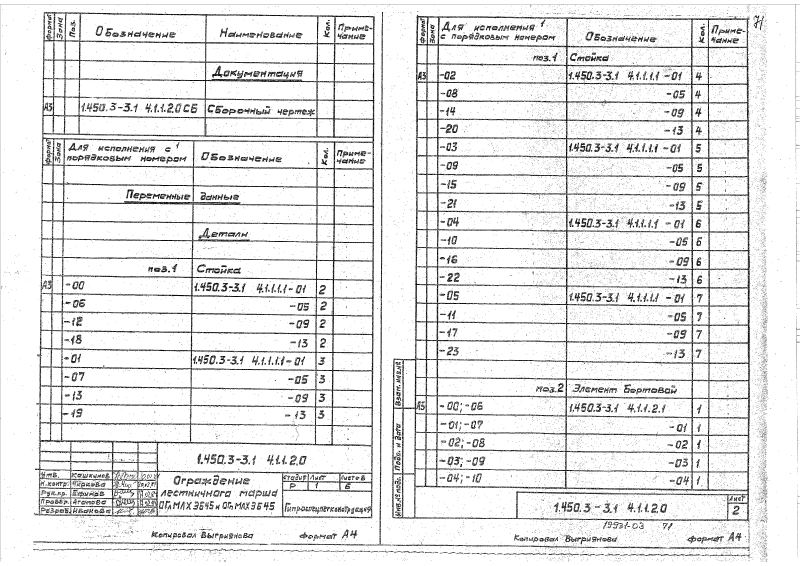 Формат Зона Поз. Обозначение Наименование Кол. Приме-чание
Документация
А3 1.450.3-3.1 4.1.1.2.0 СБ Сборочный чертеж
Формат Зона Для исполнения с порядковым номером 1 Обозначение Кол. Приме-чание
Переменные данные
Детали
поз.1 Стойка
А3 -00 1.450.3-3.1 4.1.1.1.1-01 2
-06 -05 2
-12 -09 2
-18 -13 2
-01 1.450.3-3.1 4.1.1.1.1-01 3
-07 -05 3
-13 -09 3
-19 -13 3
1.450.3-3.1 4.1.1.2.0
Утв. Кашкинов
Н.контр. Чиркова
Рук.пр.
Провер. Агапова
Разраб. Иванова
Ограждение
лестничного марша
ОГпМЛХ ЗБ45 и ОГпМАХ ЗБ45
Стадия Лист Листов
Р 1 6
Гипроспецлегконструкция
Копировал Выгриянова формат А4
71
Формат Зона Для исполнения 1 с порядковым номером Обозначение Кол. Приме-чание
поз.1 Стойка
А3 -02 1.450.3-3.1 4.1.1.1.1-01 4
-08 -05 4
-14 -09 4
-20 -13 4
-03 1.450.3-3.1 4.1.1.1.1-01 5
-09 -05 5
-15 -09 5
-21 -13 5
-04 1.450.3-3.1 4.1.1.1.1-01 6
-10 -05 6
-16 -09 6
-22 -13 6
-05 1.450.3-3.1 4.1.1.1.1-01 7
-11 -05 7
-17 -09 7
-23 -13 7
поз.2 Элемент Бортовой
А3 -00; -06 1.450.3-3.1 4.1.1.2.1 1
-01; -07 -01 1
-02; -08 -02 1
-03; -09 -03 1
-04; -10 -04 1
Взам. инв.№
Подп. и дата
Инв.№ подл.
1.450.3-3.1 4.1.1.2.0
Лист
2
19931-03 71
Копировал Выгриянова формат А4